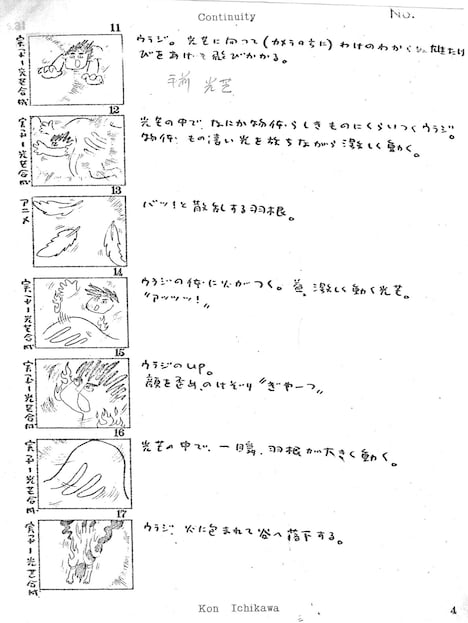 Continuity
No.
11
実写ー光芒合成
ウラジ。光芒に向って(カメラのちに)わけのわからない雄たけ
びをあげて飛びかかる。
手前 光芒
12
実写ー光芒合成
光芒の中で、なにか物体らしきものにくらいつくウラジ。
物体、もの凄い光を放ちながら激しく動く。
13
アニメ
バッ!と散乱する羽根。
14
実写ー光芒合成
ウラジの体に火がつく。 激しく動く光芒。
"アッッッ!"
15
実写ー光芒合成
ウラジのup。
顔を歪み、のけぞり"ぎゃーっ"
16
実写ー光芒合成
光芒の中で、一瞬、羽根が大きく動く。
17
実写ー光芒合成
ウラジ、火に包まれて谷へ落下する。
Kon Ichikawa
4